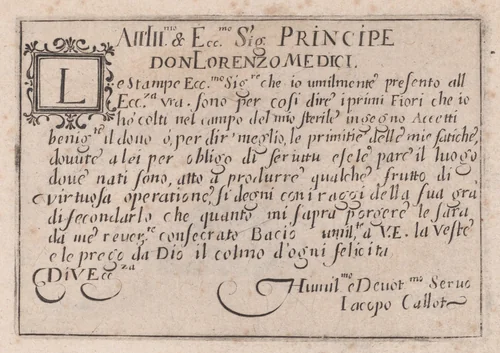 All Ill.mo & Ecc.mo Sig. PRINCIPE
DON LORENZO MEDICI.
Le Stampe Ecc.mo Sig.re che io umilmente presento all
Ecc.za vra. sono per cosi dire i primi Fiori che io
hò colti nel campo del mio sterile ingegno Accetti
benig.te il dono ò, per dir' meglio, le primitie delle mie fatiche,
douute a lei per obligo di seruitu e se le pare il luogo
doue nati sono, atto a produrre qualche frutto di
virtuosa operatione, si degni con i raggi della sua grã
di secondarlo che quanto mi saprà porgere le sarà
da me reuer.te consecrato Bacio umil.te a V.E. la Veste
e le prego da Dio il colmo d'ogni felicita
Di V. Ecc.za
Humil.mo e Deuot.mo Seruo
Iacopo Callot